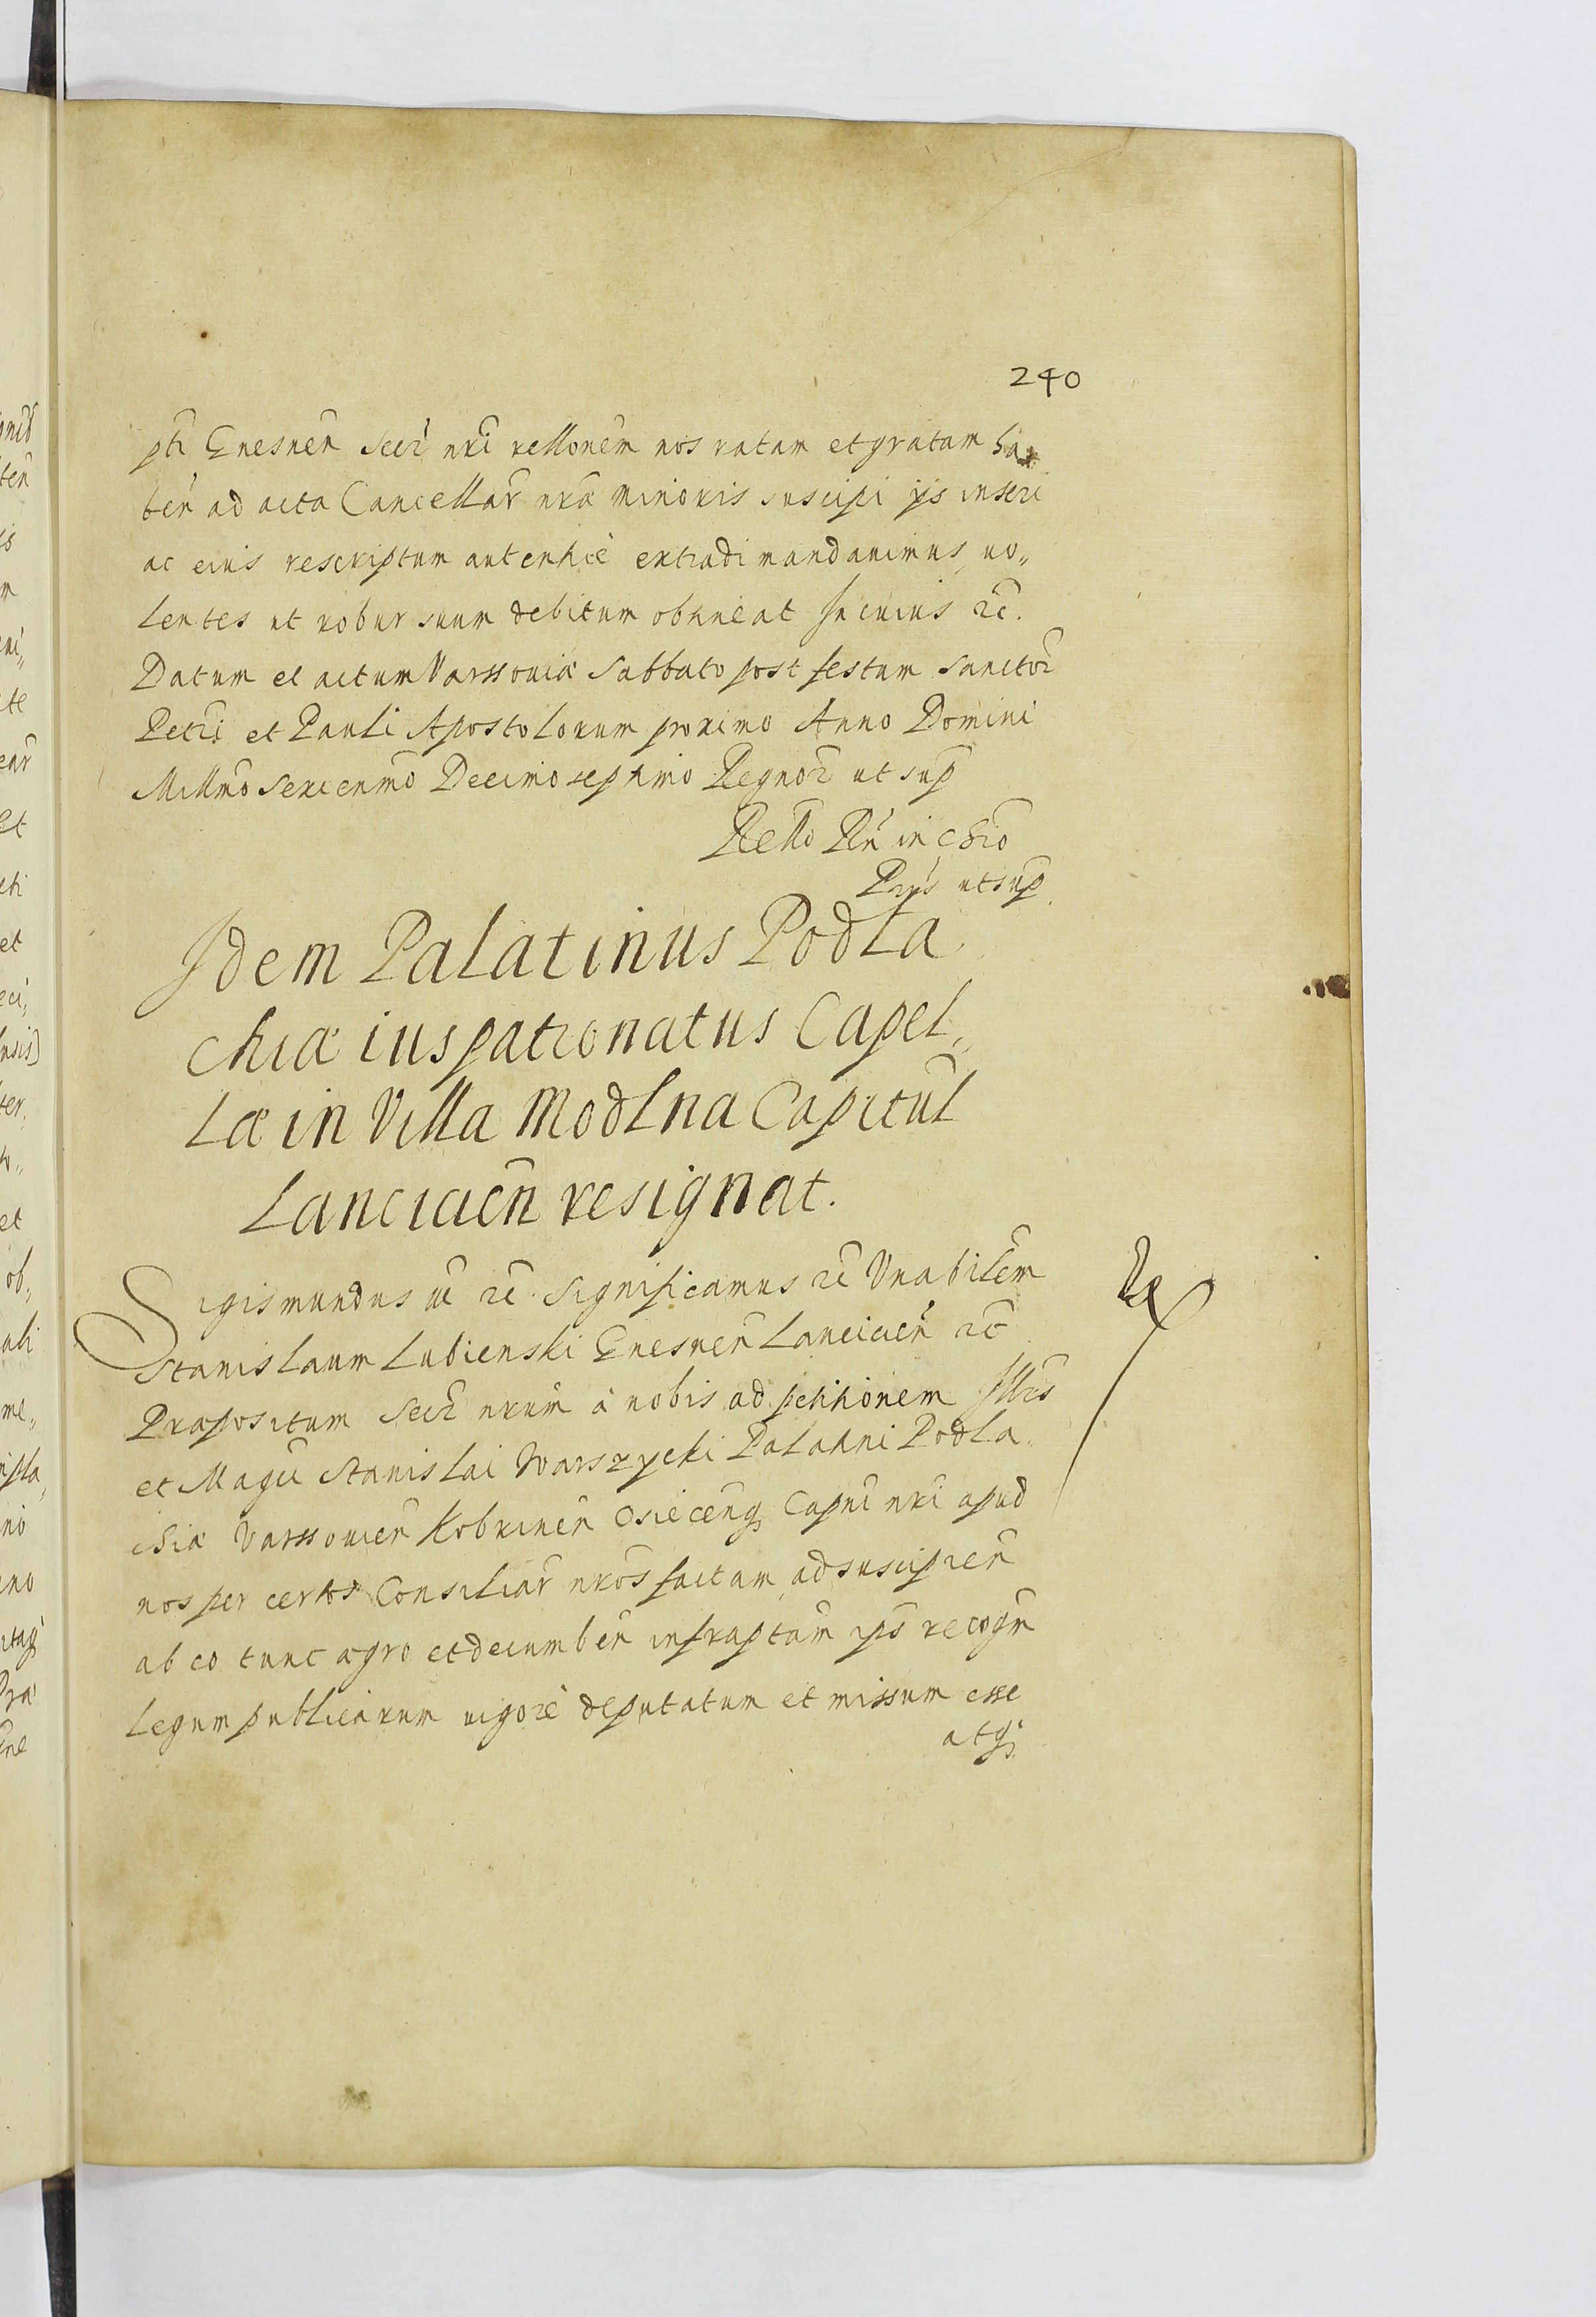 240
pti Gnesnen Secr nri rellonem nos ratam et gratam ha
ben ad acta Cancellar nræ minoris suscipi ijs inseri
ac eius rescriptum autentice extradi mandauimus, uo„
lentes ut robur suum debitum obtineat In cuius rc.
Datum et actum Varssouiæ Sabbato post festum Sanctor
Petri et Pauli Apostolorum proximo Anno Domini
Millmo Sexcenmo Decimo septimo Regnor ut sup
Rello Rn in Chro
Pris ut sup
Idem Palatinus Podla
chiæ ius patronatus Capel„
læ in Villa Modlna Capitul
Lancicien resignat.
Sigismundus III rc. Significamus rc Vnabilem
Stanislaum Lubienski Gnesnen Lancicien rc
Præpositum Secr nrum à nobis ad petitionem Illris
et Magci Stanislai Warszycki Palatini Podla„
chiæ Varssouien Kobrinen Osiecenq Capnei nri apud
nos per certos Consiliar nros factam, ad suscipien
ab eo tunc ægro et decumben infraptam ips recogn
legum publicarum uigore deputatum et missum esse
atq